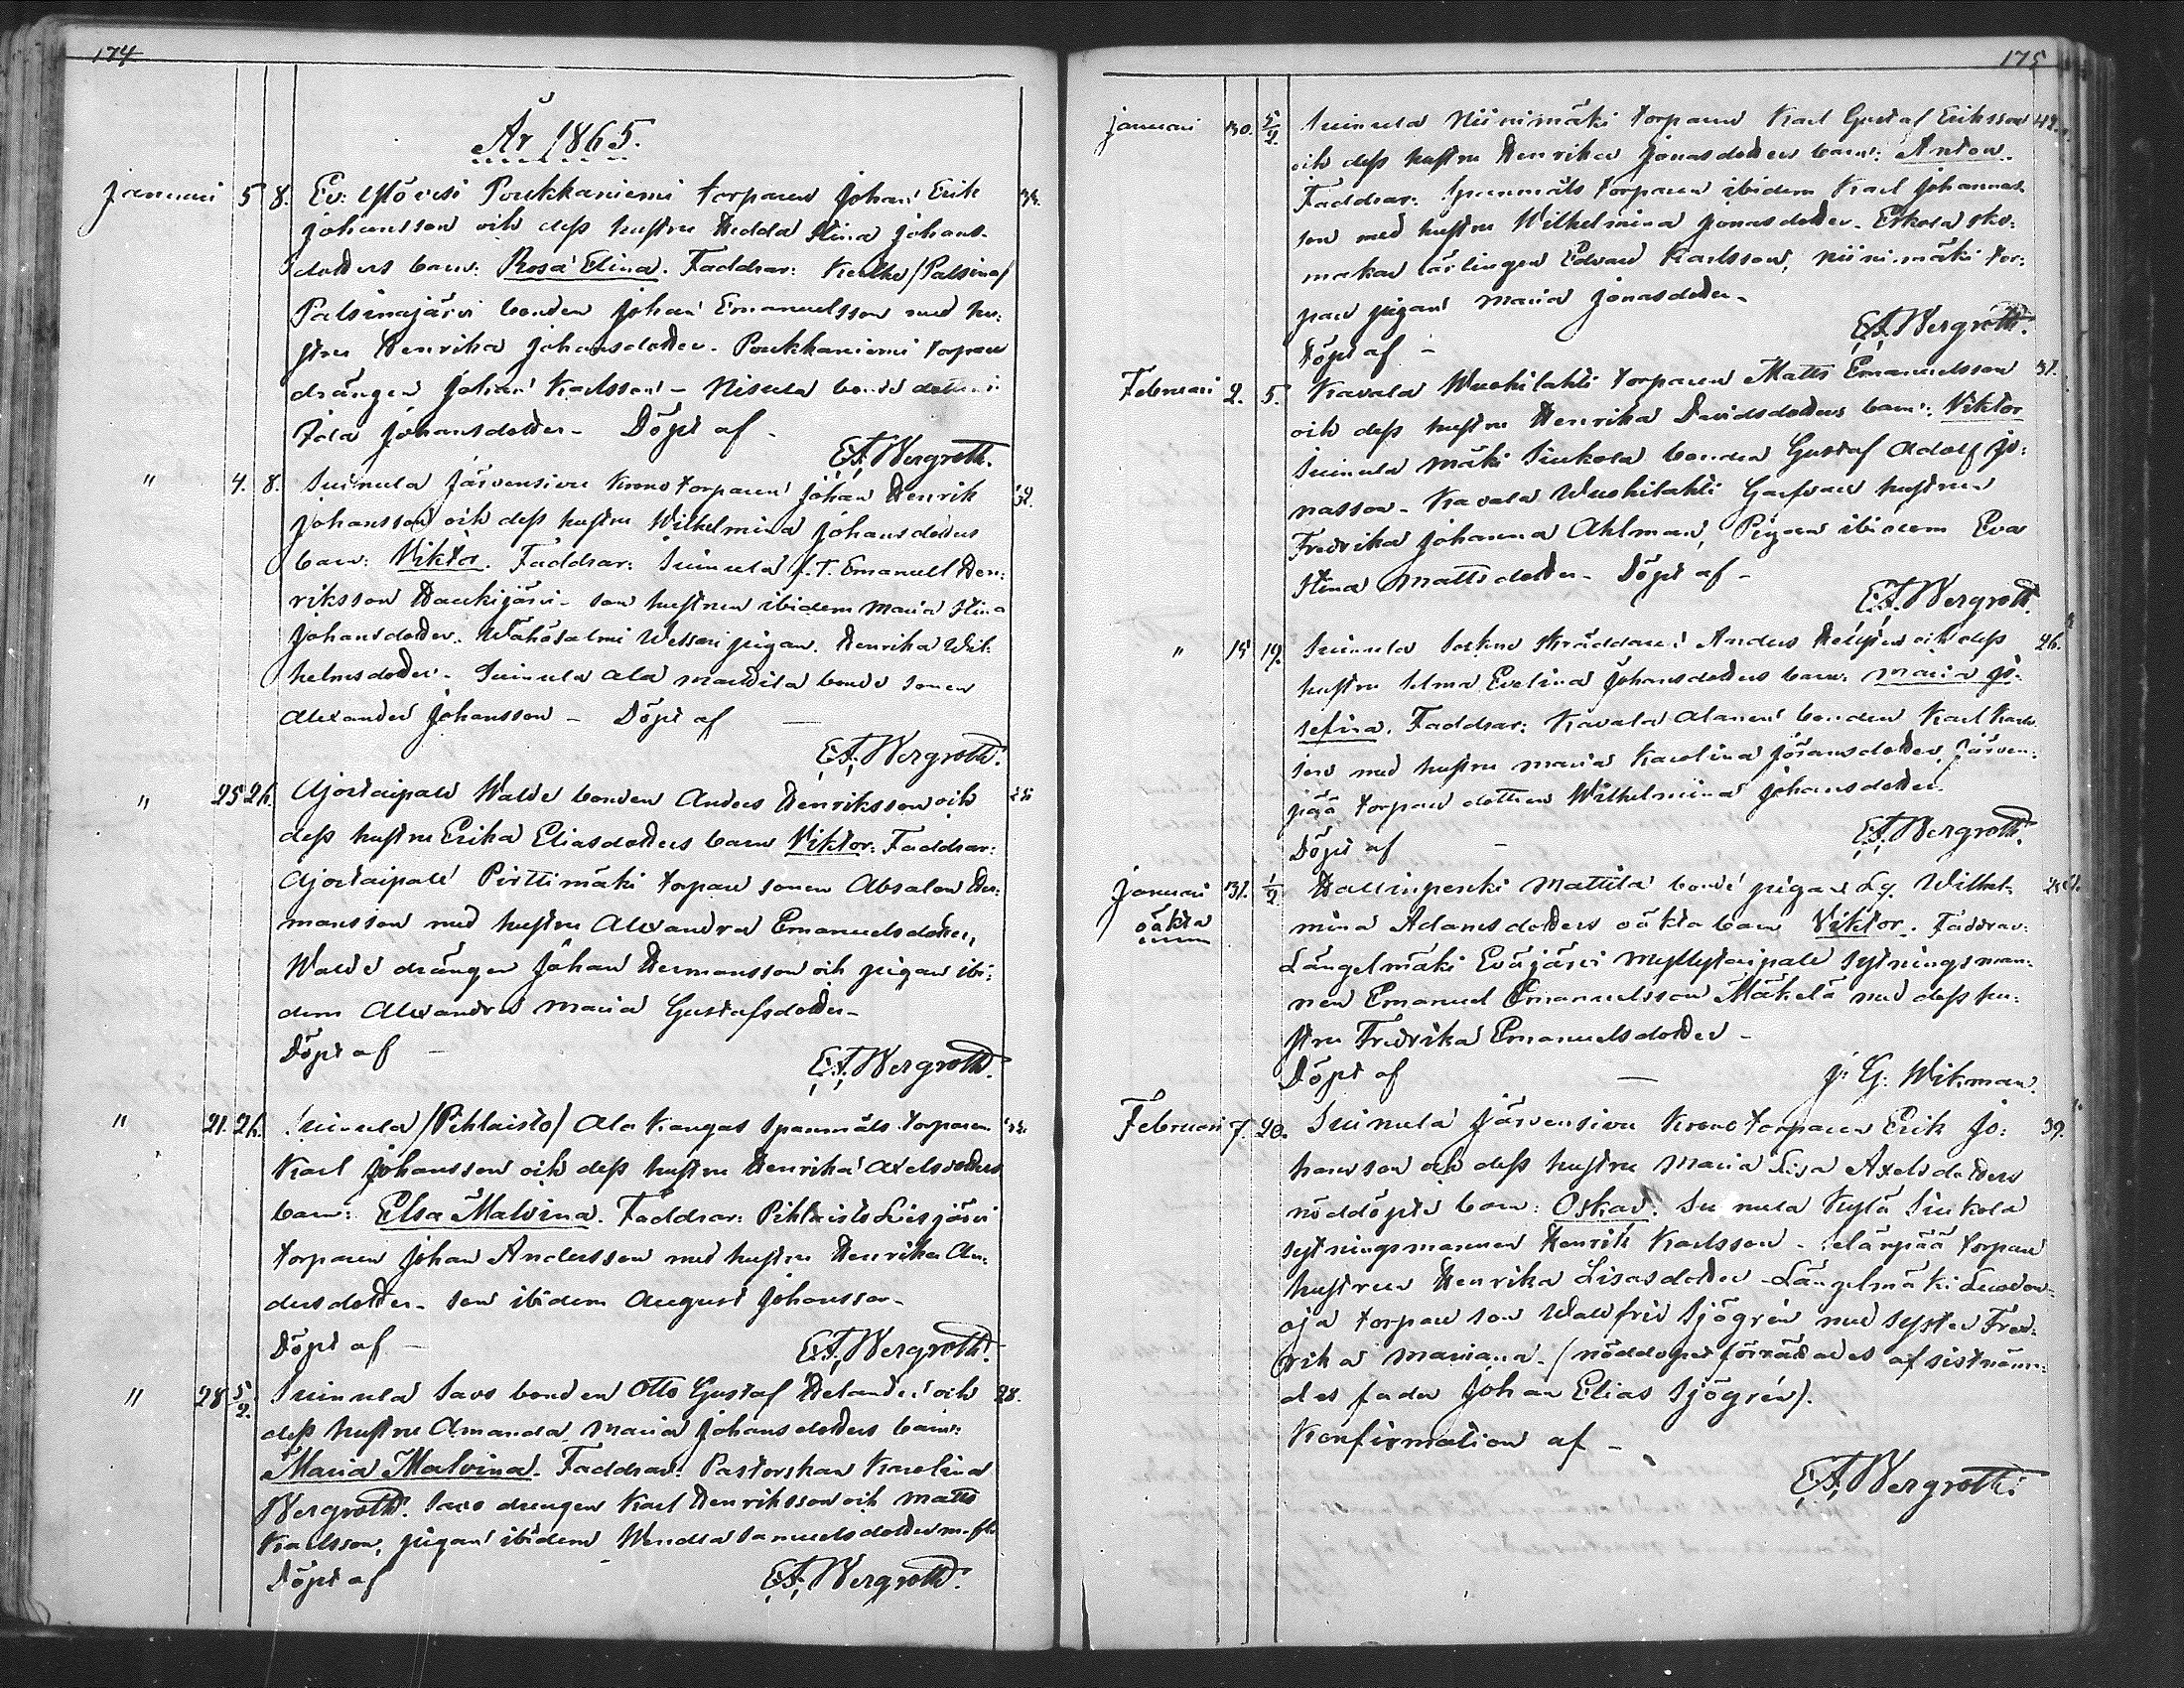 174
År 1865.
Januari 5 8. Ev: Poukkaniemi torparen Johan Erik
Johansson och dess hustru Hedda Stina Johans-
dotters barn: Rosa Elina. Faddrar:
Palsinajärvi bonden Johan Emanuelsson med hu-
stru Henrika Johansdotter. Poukkaniemi torpare
drängen Johan Karlsson - Nisula bonde dottern
Ida Johansdotter - Döpt af -
E.A. Wergroth.
" 4. 8. Suinula Järvensivu Krono torparen Johan Henrik
Johansson och dess hustru Wilhelmina Johansdotters
barn: Viktor. Faddrar: Suinula Emanuel Hen-
riksson Haukijärvi - son hustrun ibidem Maria Stina
Johansdotter. Wähäsalmi pigan Henrika Wil-
helmsdotter - Suinula Ala bonde sonen
Alexander Johansson - Döpt af -
E.A. Wergroth.
" 25 26. Ajostaipale Walde bonden Anders Henriksson och
dess hustru Erika Eliasdotters barn Viktor: Faddrar:
Ajostaipale Pirttimäki torpare sonen Absalon Her-
mansson med hustru Alexandra Emanuelsdotter,
Walde drängen Johan Hermansson och pigan ibi-
dem Alexandra Maria Gustafsdotter -
Döpt af - E.A. Wergroth.
" 21. 26. Suinula /Pihlaisto/ Ala Kangas Spanmåls torparen
Karl Johansson och dess hustru Henrika Axelsdotters
barn: Elsa Malvina. Faddrar: Pihlaisto
torparen Johan Andersson med hustru Henrika An-
dersdotter - son ibidem August Johansson -
Döpt af - E.A. Wergroth.
" 28 5/2. Suinula Savo bonden Otto Gustaf Helander och 28.
dess hustru Amanda Maria Johansdotters barn:
Maria Malvina. Faddrar: Pastorskan Karolina
Wergroth. Savo drengen Karl Henriksson och Matts
Karlsson, pigan ibidem Wendla Samuelsdotter m. fl.
Döpt af - E.A. Wergroth.
175
Januari 30. 5/2 Suinula Niinimäki torparen Karl Gustaf Eriksson 42.
och dess hustru Henrika Jonasdotters barn: Anton.
Faddrar: Spanmåls torparen ibidem Karl Johannes-
son med hustru Wilhelmina Jonasdotter - Eskola sko-
makar lärlingen Edvard Karlsson, Niinimäki tor-
pare pigan Maria Jonasdotter -
Döpt af - E.A. Wergroth.
Februari 2. 5. Kavala Wuohilahti torparen Matts Emanuelsson 31.
och dess hustru Henrika Davidsdotters barn: Viktor
Suinula Mäki Siukola bonden Gustaf Adolf Jo-
nasson - Kavala Wuohilahti hustrun
Fredrika Johanna Ahlman, Pigan ibidem Eva
Stina Mattsdotter - Döpt af -
E.A. Wergroth.
" 15 19. Suinula Socken Skräddaren Anders och dess 26.
hustru Selma Evelina Johansdotters barn: Maria Jo-
sefina. Faddrar: Kavala Alanen bonden Karl Karls-
son med hustru Maria Karolina Göransdotter, Järven-
pää torpare dottern Wilhelmina Johansdotter.
Döpt af - E.A. Wergroth.
Januari 31. 1/2 Hallinpenki Mattila bonde pigan Lg. Wilhel-
oäkta mina Adamsdotters oäkta barn Viktor. Faddrar:
Längelmäki Eväjärvi Myllytaipale sytningsman-
nen Emanuel Emanuelsson Mäkelä med dess hu-
stru Fredrika Emanuelsdotter -
Döpt af - J. G. Wikman.
Februari 7. 20. Suinula Järvensivu Krono torparen Erik Jo- 39.
hansson och dess hustru Maria Lisa Axelsdotters
nöddöpta barn: Oskar. Suinula Kylä Siukola
sytningsmannen Henrik Karlsson - torpare
hustrun Henrika Lisasdotter - Längelmäki
oja torpare son Walfrid Sjögrén med syster Fred-
rika Mariana. (nöddopet förrättades af sistnäm-
des fader Johan Elias Sjögrén).
Konfirmation af -
E.A. Wergroth.